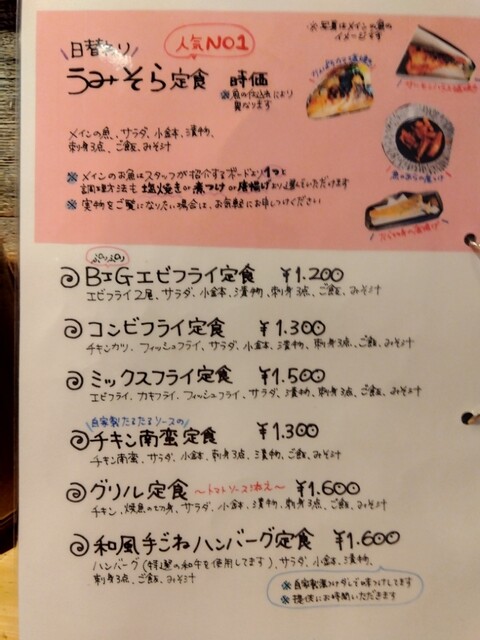 ※写真はメインの魚の
イメージです
日替わり
人気NO1
うみそら定食 時価
※魚の仕込みにより
異なります
メインの魚、サラダ、小鉢、漬物、
刺身3点、ご飯、みそ汁
※メインのお魚はスタッフが紹介するボードより1つと
調理方法も塩焼きor煮つけor唐揚げより選んでいただけます
※実物をご覧になりたい場合は、お気軽にお申しつけください
ぷりぷり
BIGエビフライ定食 ¥1.200
エビフライ2尾、サラダ、小鉢、漬物、刺身3点、ご飯、みそ汁
コンビフライ定食 ¥1.300
チキンカツ、フィッシュフライ、サラダ、小鉢、漬物、刺身3点、ご飯、みそ汁
ミックスフライ定食 ¥1.500
エビフライ、カキフライ、フィッシュフライ、サラダ、漬物、刺身3点、ご飯、みそ汁
自家製たるたるソースの
チキン南蛮定食 ¥1.300
チキン南蛮、サラダ、小鉢、刺身3点、漬物、ご飯、みそ汁
グリル定食 〜トマトソース添え〜 ¥1.600
チキン、焼魚の切身、サラダ、小鉢、漬物、刺身3点、ご飯、みそ汁
和風手ごねハンバーグ定食 ¥1.600
ハンバーグ(特選の和牛を使用してます)、サラダ、小鉢、漬物、
刺身3点、ご飯、みそ汁
※自家製漬けダレで味つけしてます
※提供にお時間いただきます